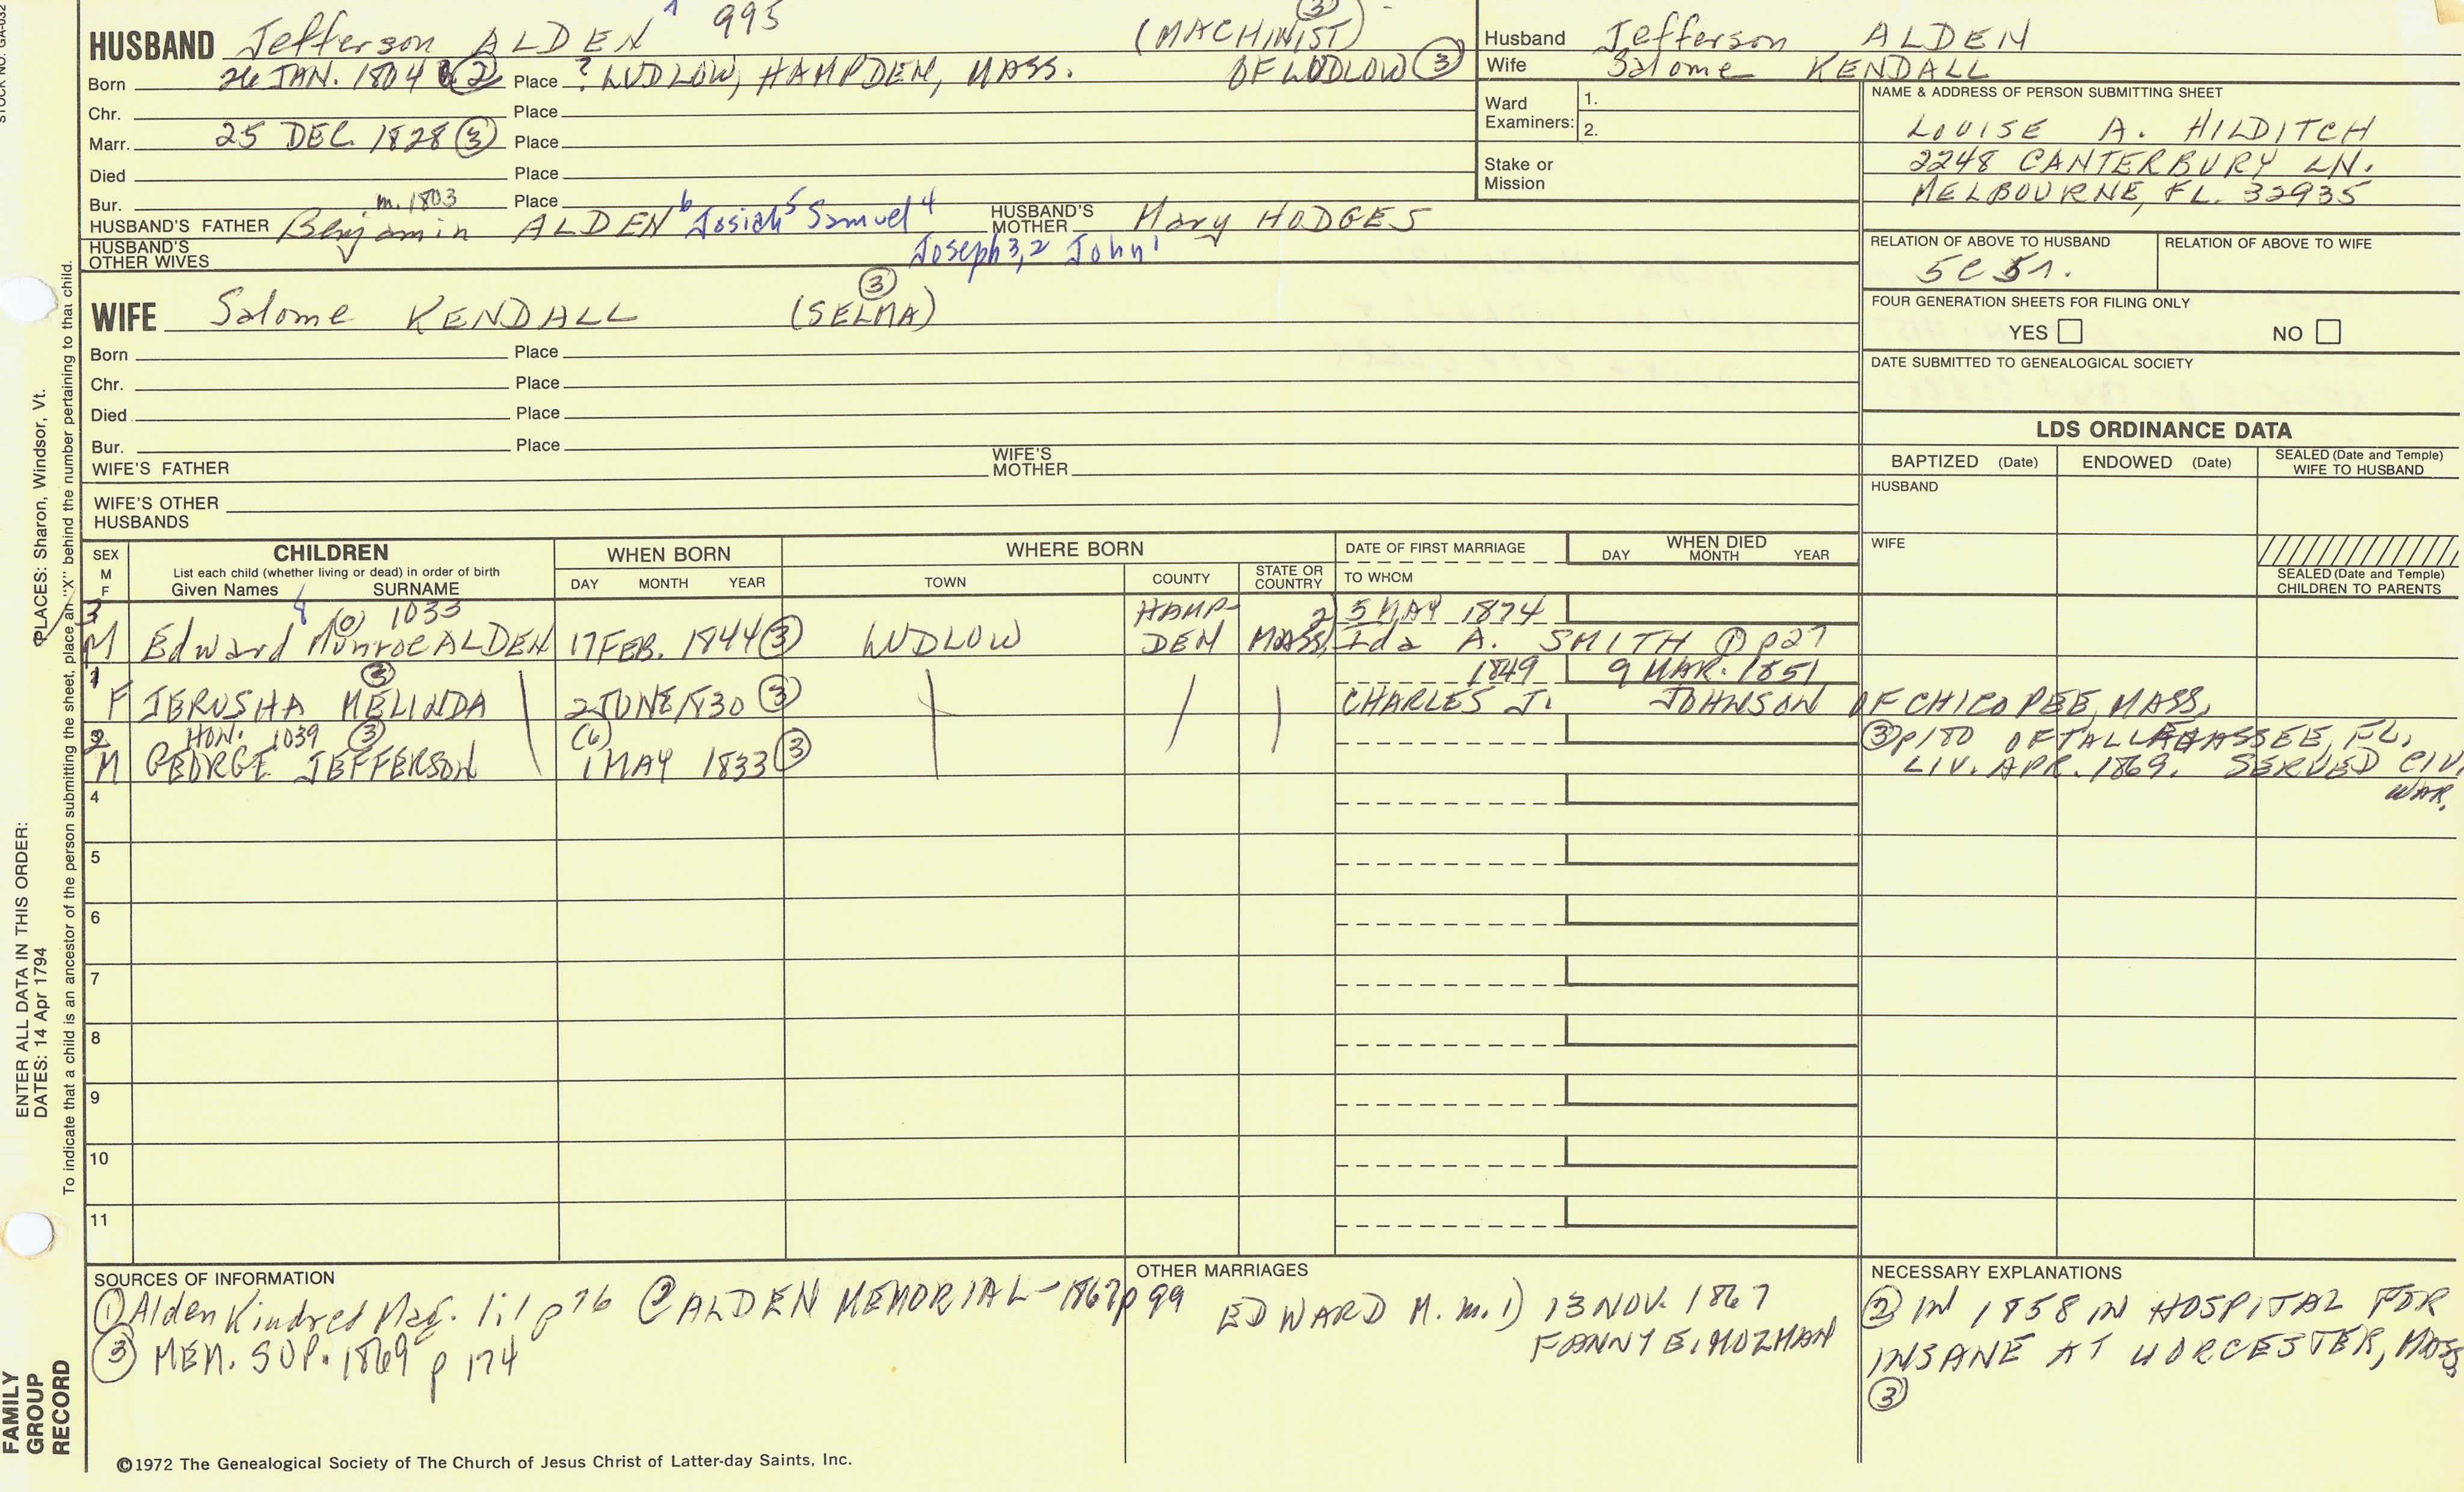 STOCK NO. GA-032
7 995 (3) -
HUSBAND Jefferson ALDEN (MACHINIST)
Born 26 JAN. 1804 (2) Place ? LUDLOW, HAMPDEN, MASS. OF LUDLOW (3)
Chr. Place
Marr. 25 DEC. 1828 (3) Place
Died Place
Bur. Place
m. 1803
HUSBAND'S FATHER Benjamin ALDEN 6 Josiah 5 Samuel 4 HUSBAND'S MOTHER Mary HODGES
Joseph 3,2 John 1
HUSBAND'S OTHER WIVES
(3)
WIFE Salome KENDALL (SELMA)
Born Place
Chr. Place
Died Place
Bur. Place
WIFE'S FATHER WIFE'S MOTHER
WIFE'S OTHER HUSBANDS
Husband Jefferson ALDEN
Wife Salome KENDALL
Ward Examiners: 1.
2.
Stake or Mission
NAME & ADDRESS OF PERSON SUBMITTING SHEET
LOUISE A. HILDITCH
2248 CANTERBURY LN.
MELBOURNE, FL. 32935
RELATION OF ABOVE TO HUSBAND RELATION OF ABOVE TO WIFE
5C 5r.
FOUR GENERATION SHEETS FOR FILING ONLY
YES NO
DATE SUBMITTED TO GENEALOGICAL SOCIETY
LDS ORDINANCE DATA
BAPTIZED (Date) ENDOWED (Date) SEALED (Date and Temple) WIFE TO HUSBAND
HUSBAND
WIFE
SEALED (Date and Temple) CHILDREN TO PARENTS
SEX M F
CHILDREN
List each child (whether living or dead) in order of birth
Given Names SURNAME
WHEN BORN
DAY MONTH YEAR
WHERE BORN
TOWN COUNTY STATE OR COUNTRY
DATE OF FIRST MARRIAGE
TO WHOM
WHEN DIED
DAY MONTH YEAR
3 8 (0) 1033 HAMP- 2) 5 MAY 1874
M Edward Munroe ALDEN 17 FEB. 1844 (3) LUDLOW DEN MASS. Ida A. SMITH (1) p27
1 (3) 1849 9 MAR. 1851
F JERUSHA MELINDA 2 JUNE 1830 (3) CHARLES J. JOHNSON OF CHICOPEE, MASS.
2 HON. 1039 (3) (6) (3) p180 OF TALLAHASSEE, FL.
M GEORGE JEFFERSON 1 MAY 1833 (3) LIV. APR. 1869. SERVED CIV.
WAR.
4
5
6
7
8
9
10
11
SOURCES OF INFORMATION
(1) Alden Kindred Mag. 1:1 p 76 (2) ALDEN MEMORIAL-1867 p 99
(3) MEM. SUP. 1869 p 174
OTHER MARRIAGES
EDWARD M. m. 1) 13 NOV. 1867
FANNY E. MOZMAN
NECESSARY EXPLANATIONS
(2) IN 1858 IN HOSPITAL FOR
INSANE AT WORCESTER, MASS
(3)
©1972 The Genealogical Society of The Church of Jesus Christ of Latter-day Saints, Inc.
ENTER ALL DATA IN THIS ORDER:
DATES: 14 Apr 1794
PLACES: Sharon, Windsor, Vt.
To indicate that a child is an ancestor of the person submitting the sheet, place an "X" behind the number pertaining to that child.
FAMILY
GROUP
RECORD